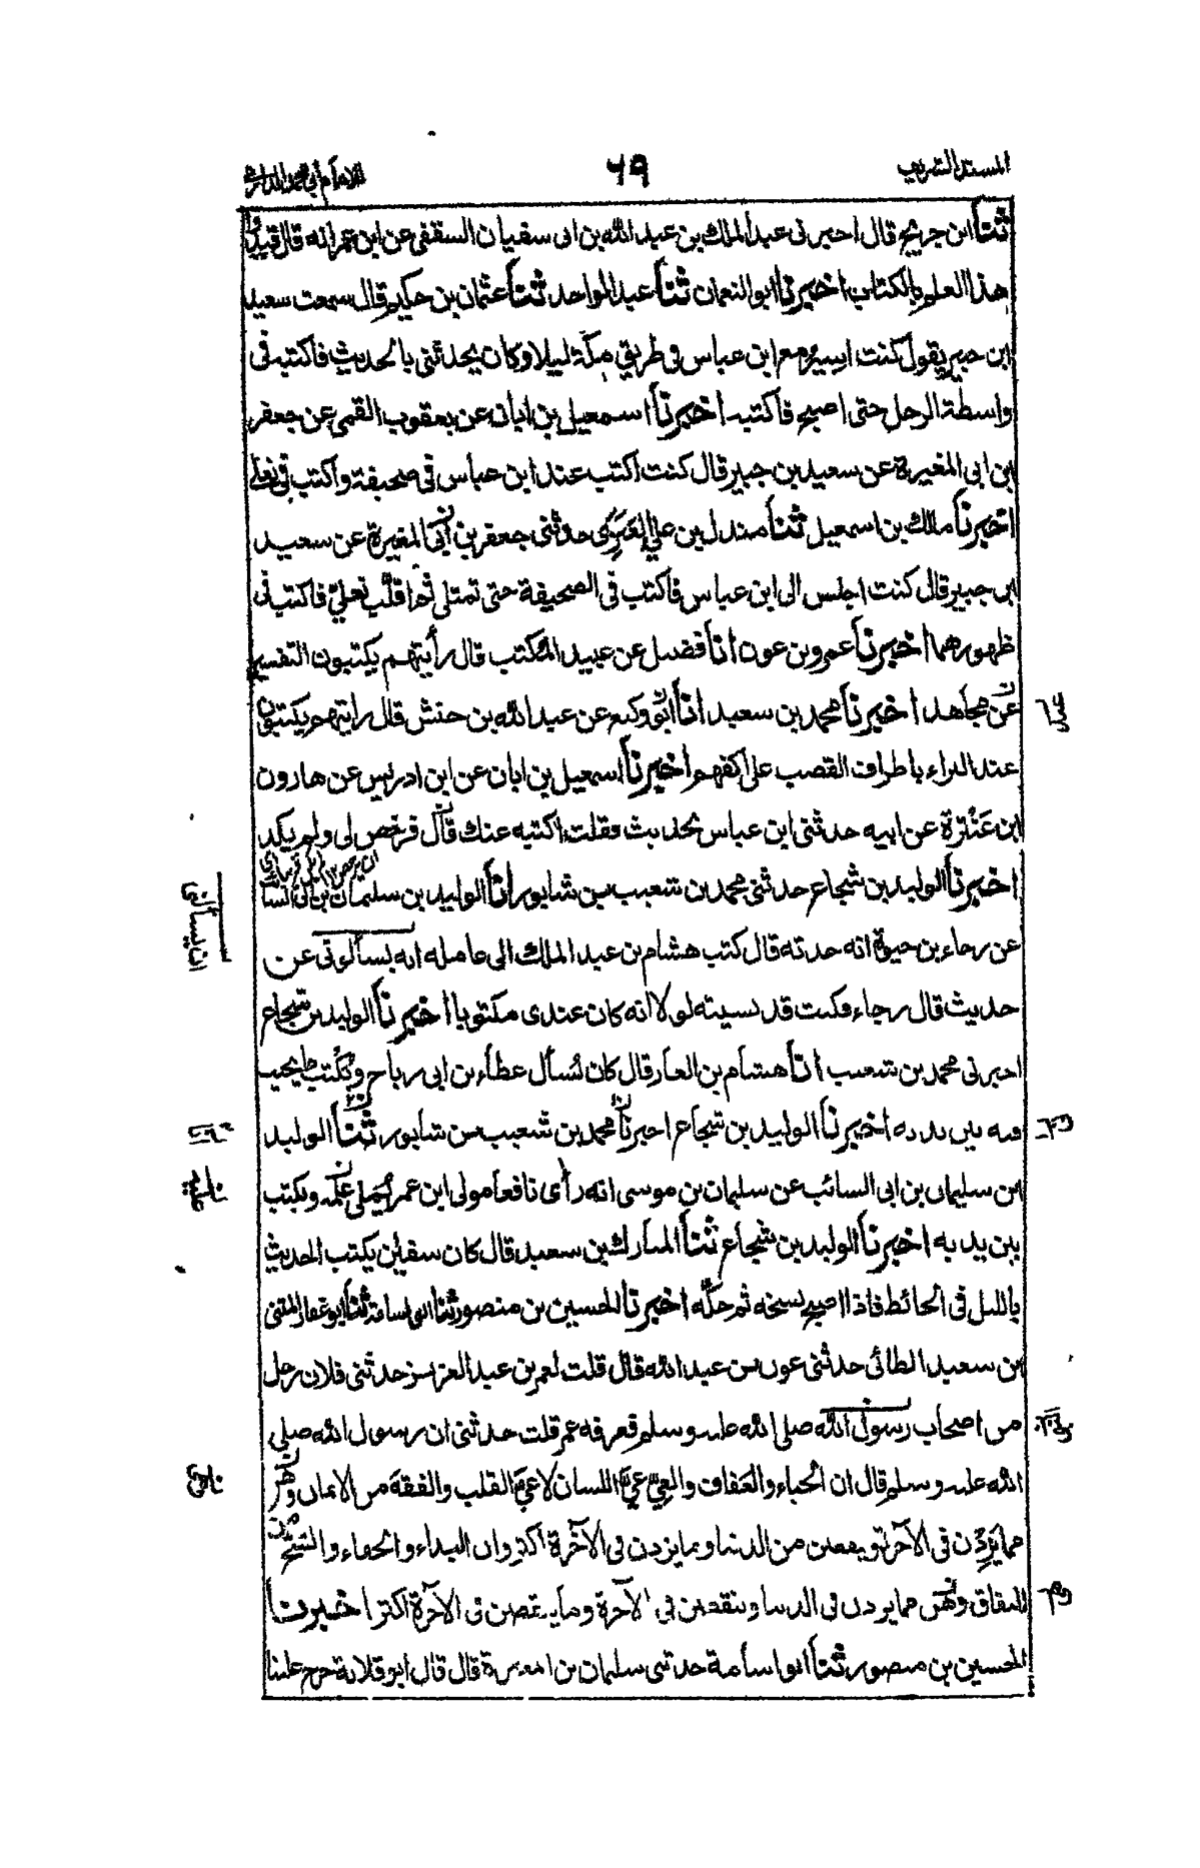 المسند الشريف ٦٩ للامام أبي محمد الدارمي
ثنا ابن جريج قال اخبرنى عبد الملك بن عبد الله بن ابى سفيان الثقفى عن ابن عمر انه قال قيدوا
هذا العلم بالكتاب اخبرنا ابو النعمان ثنا عبد الواحد ثنا عثمان بن حكيم قال سمعت سعيد
ابن جبير يقول كنت اسير مع ابن عباس فى طريق مكة ليلا وكان يحدثنى بالحديث فاكتبه فى
واسطة الرحل حتى اصبح فاكتبه اخبرنا اسمعيل بن ابان عن يعقوب القمى عن جعفر
بن ابى المغيرة عن سعيد بن جبير قال كنت اكتب عند ابن عباس فى صحيفة واكتب فى نعلى
اخبرنا مالك بن اسمعيل ثنا مندل بن على العنزى حدثنى جعفر بن ابى المغيرة عن سعيد
ابن جبير قال كنت اجلس الى ابن عباس فاكتب فى الصحيفة حتى تمتلى ثم اقلب نعلى فاكتب فى
ظهورهما اخبرنا عمرو بن عون انا فضيل عن عبيد المكتب قال رأيتهم يكتبون التفسير
عن مجاهد اخبرنا محمد بن سعيد انا ابو وكيع عن عبد الله بن حنش قال رايتهم يكتبون
عند البراء باطراف القصب على اكفهم اخبرنا اسمعيل بن ابان عن ابن ادريس عن هارون
ابن عَنْتَرة عن ابيه حدثنى ابن عباس بحديث فقلت اكتبه عنك قال فرخص لى ولم يكد
اخبرنا الوليد بن شجاع حدثنى محمد بن شعيب بن شابور انا الوليد بن سليمان بن ابى السائب
عن رجاء بن حيوة انه حدثه قال كتب هشام بن عبد الملك الى عامله انه يسألونى عن
ان يسألنى
حديث قال رجاء فكنت قد نسيته لولا انه كان عندى مكتوبا اخبرنا الوليد بن شجاع
اخبرنى محمد بن شعيب انا هشام بن الغاز قال كان يُسأل عطاء بن ابى رباح ويُكتب ما يجيب
فيه بين يديه اخبرنا الوليد بن شجاع اخبرنا محمد بن شعيب بن شابور ثنا الوليد
ابن سليمان بن ابى السائب عن سليمان بن موسى انه رأى نافعا مولى ابن عمر يُملى علمه ويكتب
بين يديه اخبرنا الوليد بن شجاع ثنا المبارك بن سعيد قال كان سفين يكتب الحديث
بالليل فى الحائط فاذا اصبح نسخه ثم حكّه اخبرنا الحسين بن منصور ثنا ابو اسامة ثنا ابو غفار المثنى
بن سعيد الطائى حدثنى عون بن عبد الله قال قلت لعمر بن عبد العزيز حدثنى فلان رجل
من اصحاب رسول الله صلى الله عليه وسلم فعرفه عمر قلت حدثنى ان رسول الله صلى
الله عليه وسلم قال ان الحياء والعَفاف والعِيّ عيَّ اللسان لا عيَّ القلب والفقهَ من الايمان وهن
مما يَزِدْن فى الآخرة وينقصن من الدنيا وما يزدن فى الآخرة اكثر وان البذاء والجفاء والشح من
النفاق وهن مما يزدن فى الدنيا وينقصن فى الآخرة وما ينقصن فى الآخرة اكثر اخبرنا
الحسين بن منصور ثنا ابو اسامة حدثنى سليمان بن المغيرة قال قال ابو قلابة خرج علينا